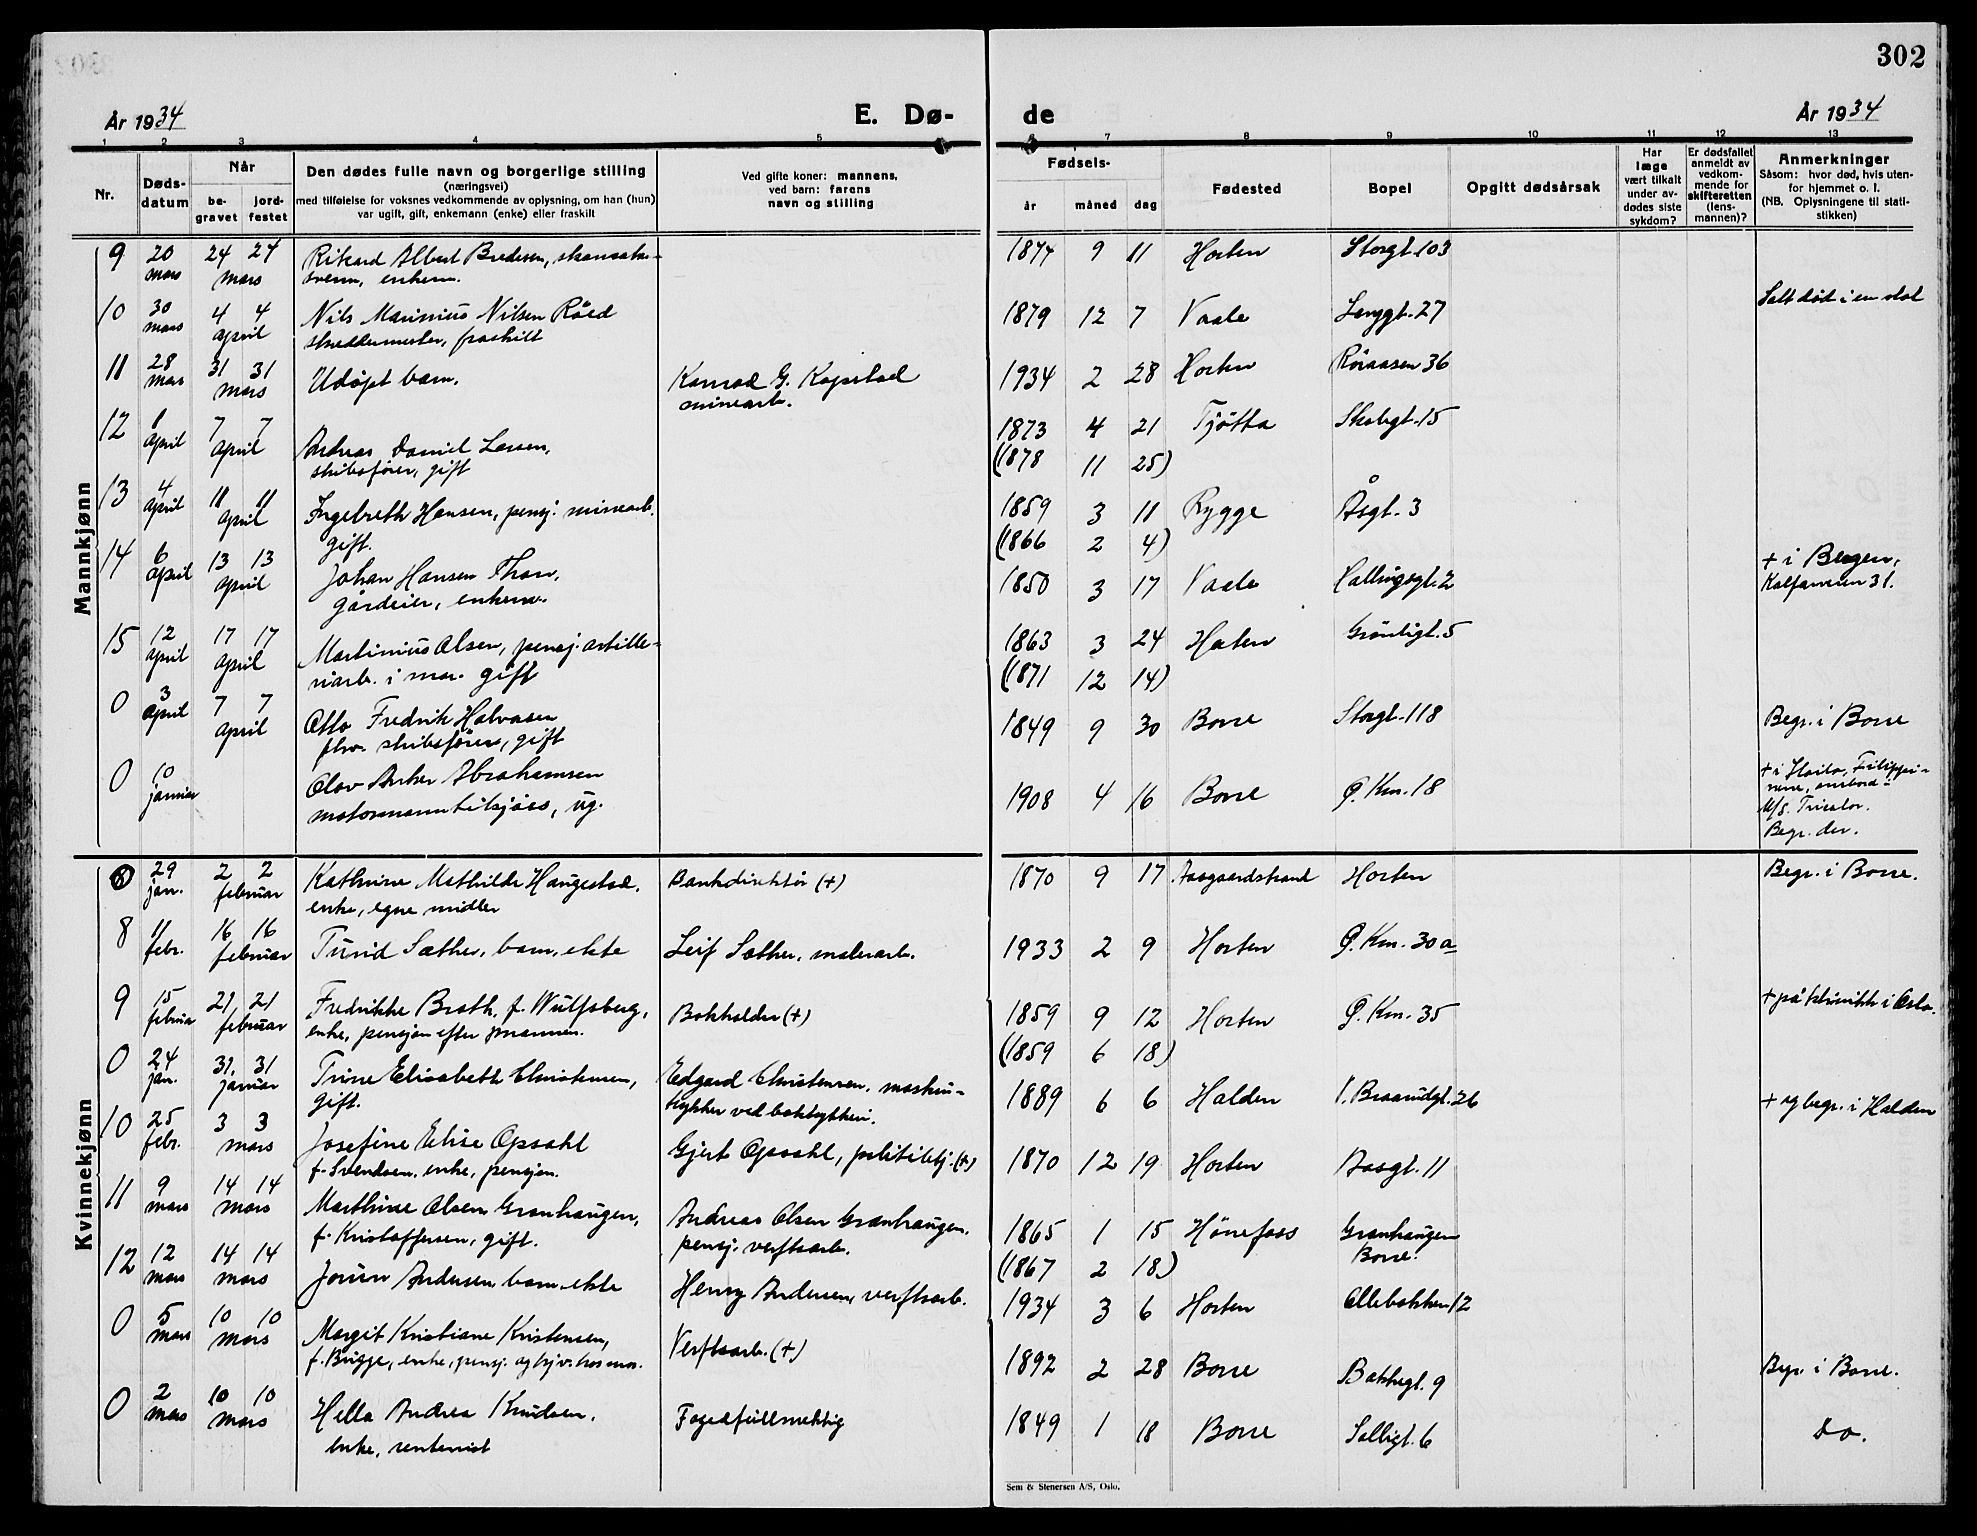 302
År 1934
E. Dø-
de
År 1934
1 2 3 4 5 6 7 8 9 10 11 12 13
Nr.
Døds-
datum
Når
be-
gravet
jord-
festet
Den dødes fulle navn og borgerlige stilling
(næringsvei)
med tilføielse for voksnes vedkommende av oplysning, om han (hun)
var ugift, gift, enkemann (enke) eller fraskilt
Ved gifte koner: mannens,
ved barn: farens
navn og stilling
Fødsels-
år måned dag
Fødested
Bopel
Opgitt dødsårsak
Har
læge
vært tilkalt
under av-
dødes siste
sykdom?
Er dødsfallet
anmeldt av
vedkom-
mende for
skifteretten
(lens-
mannen)?
Anmerkninger
Såsom: hvor død, hvis uten-
for hjemmet o. l.
(NB. Oplysningene til stati-
stikken)
Mannkjønn
9 20 mars 24 24 mars Rikard Albert Bredesen,
svenn, enkem. 1874 9 11 Horten Storgt. 103
10 30 mars 4 4 april Nils Marinius Nilsen Röed
skreddermester, fraskilt 1879 12 7 Vaale Langgt. 27 Satt död i en stol
11 28 mars 31 31 mars Udöpt barn. Konrad G. Kopstad
minearb. 1934 2 28 Horten Röraasen 36
12 1 april 7 7 april Andreas Daniel Larsen,
skibsfører, gift 1873 4 21 Tjötta Skolegt. 15
(1878 11 25)
13 4 april 11 11 april Ingebreth Hansen, pensj. minearb.
gift. 1859 3 11 Rygge Åsgt. 3
(1866 2 4)
14 6 april 13 13 april Johan Hansen Thon,
gårdeier, enkem. 1850 3 17 Vaale Hallingsgt. 2 + i Bergen,
Kalfarveien 31.
15 12 april 17 17 april Martinius Olsen, pensj. artille-
riarb. i mar. gift 1863 3 24 Horten Grönligt. 5
(1871 12 14)
0 3 april 7 7 april Otto Fredrik Halvorsen
fhv. skibsförer, gift 1849 9 30 Borre Storgt. 118 Begr. i Borre
0 10 januar Olav Anker Abrahamsen
motormann tilsjöss, ug. 1908 4 16 Borre Ø. Km. 18 + i Iloilo, Filippi-
nene, ombord i
M/S. Tricolor.
Begr. der.
Kvinnekjønn
0 29 jan. 2 2 februar Kathrine Mathilde Haugestad,
enke, egne midler Bankdirektör (+) 1870 9 17 Aasgaardstrand Horten Begr. i Borre.
8 11 febr. 16 16 februar Turid Sæther, barn, ekte Leif Sæther, malerarb. 1933 2 9 Horten Ø. Km. 30a
9 15 februar 21 21 februar Fredrikke Broth, f. Wulfsberg,
enke, pensjon efter mannen. Bokholder (+) 1859 9 12 Horten Ø. Km. 35 + på klinikk i Oslo.
(1859 6 18)
0 24 jan. 31 31 januar Trine Elisabeth Christensen,
gift. Edgard Christensen, maskin-
trykker ved boktrykkeri. 1889 6 6 Halden V. Braarudgt. 26 + og begr. i Halden
10 25 febr. 3 3 mars Josefine Elise Opsahl
f. Svendsen, enke, pensjon. Gjert Opsahl, politibtj. (+) 1870 12 19 Horten Aasgt. 11
11 9 mars 14 14 mars Marthine Olsen Granhaugen,
f. Kristoffersen, gift. Andreas Olsen Granhaugen,
pensj. verftsarb. 1865 1 15 Hönefoss Granhaugen
Borre.
(1867 2 18)
12 12 mars 14 14 mars Jorun Andersen barn ekte Henry Andersen, verftsarb. 1934 3 6 Horten Ollebakken 12
0 5 mars 10 10 mars Margit Kristiane Kristensen,
f. Bugge, enke, pensj. og hjv. hos mor. Verftsarb. (+) 1892 2 28 Borre Bakkegt. 9 Begr. i Borre.
0 2 mars 10 10 mars Hella Andrea Knudsen,
enke, rentenist Fogedfullmektig 1849 1 18 Borre Solligt. 6 do.
Sem & Stenersen A/S, Oslo.